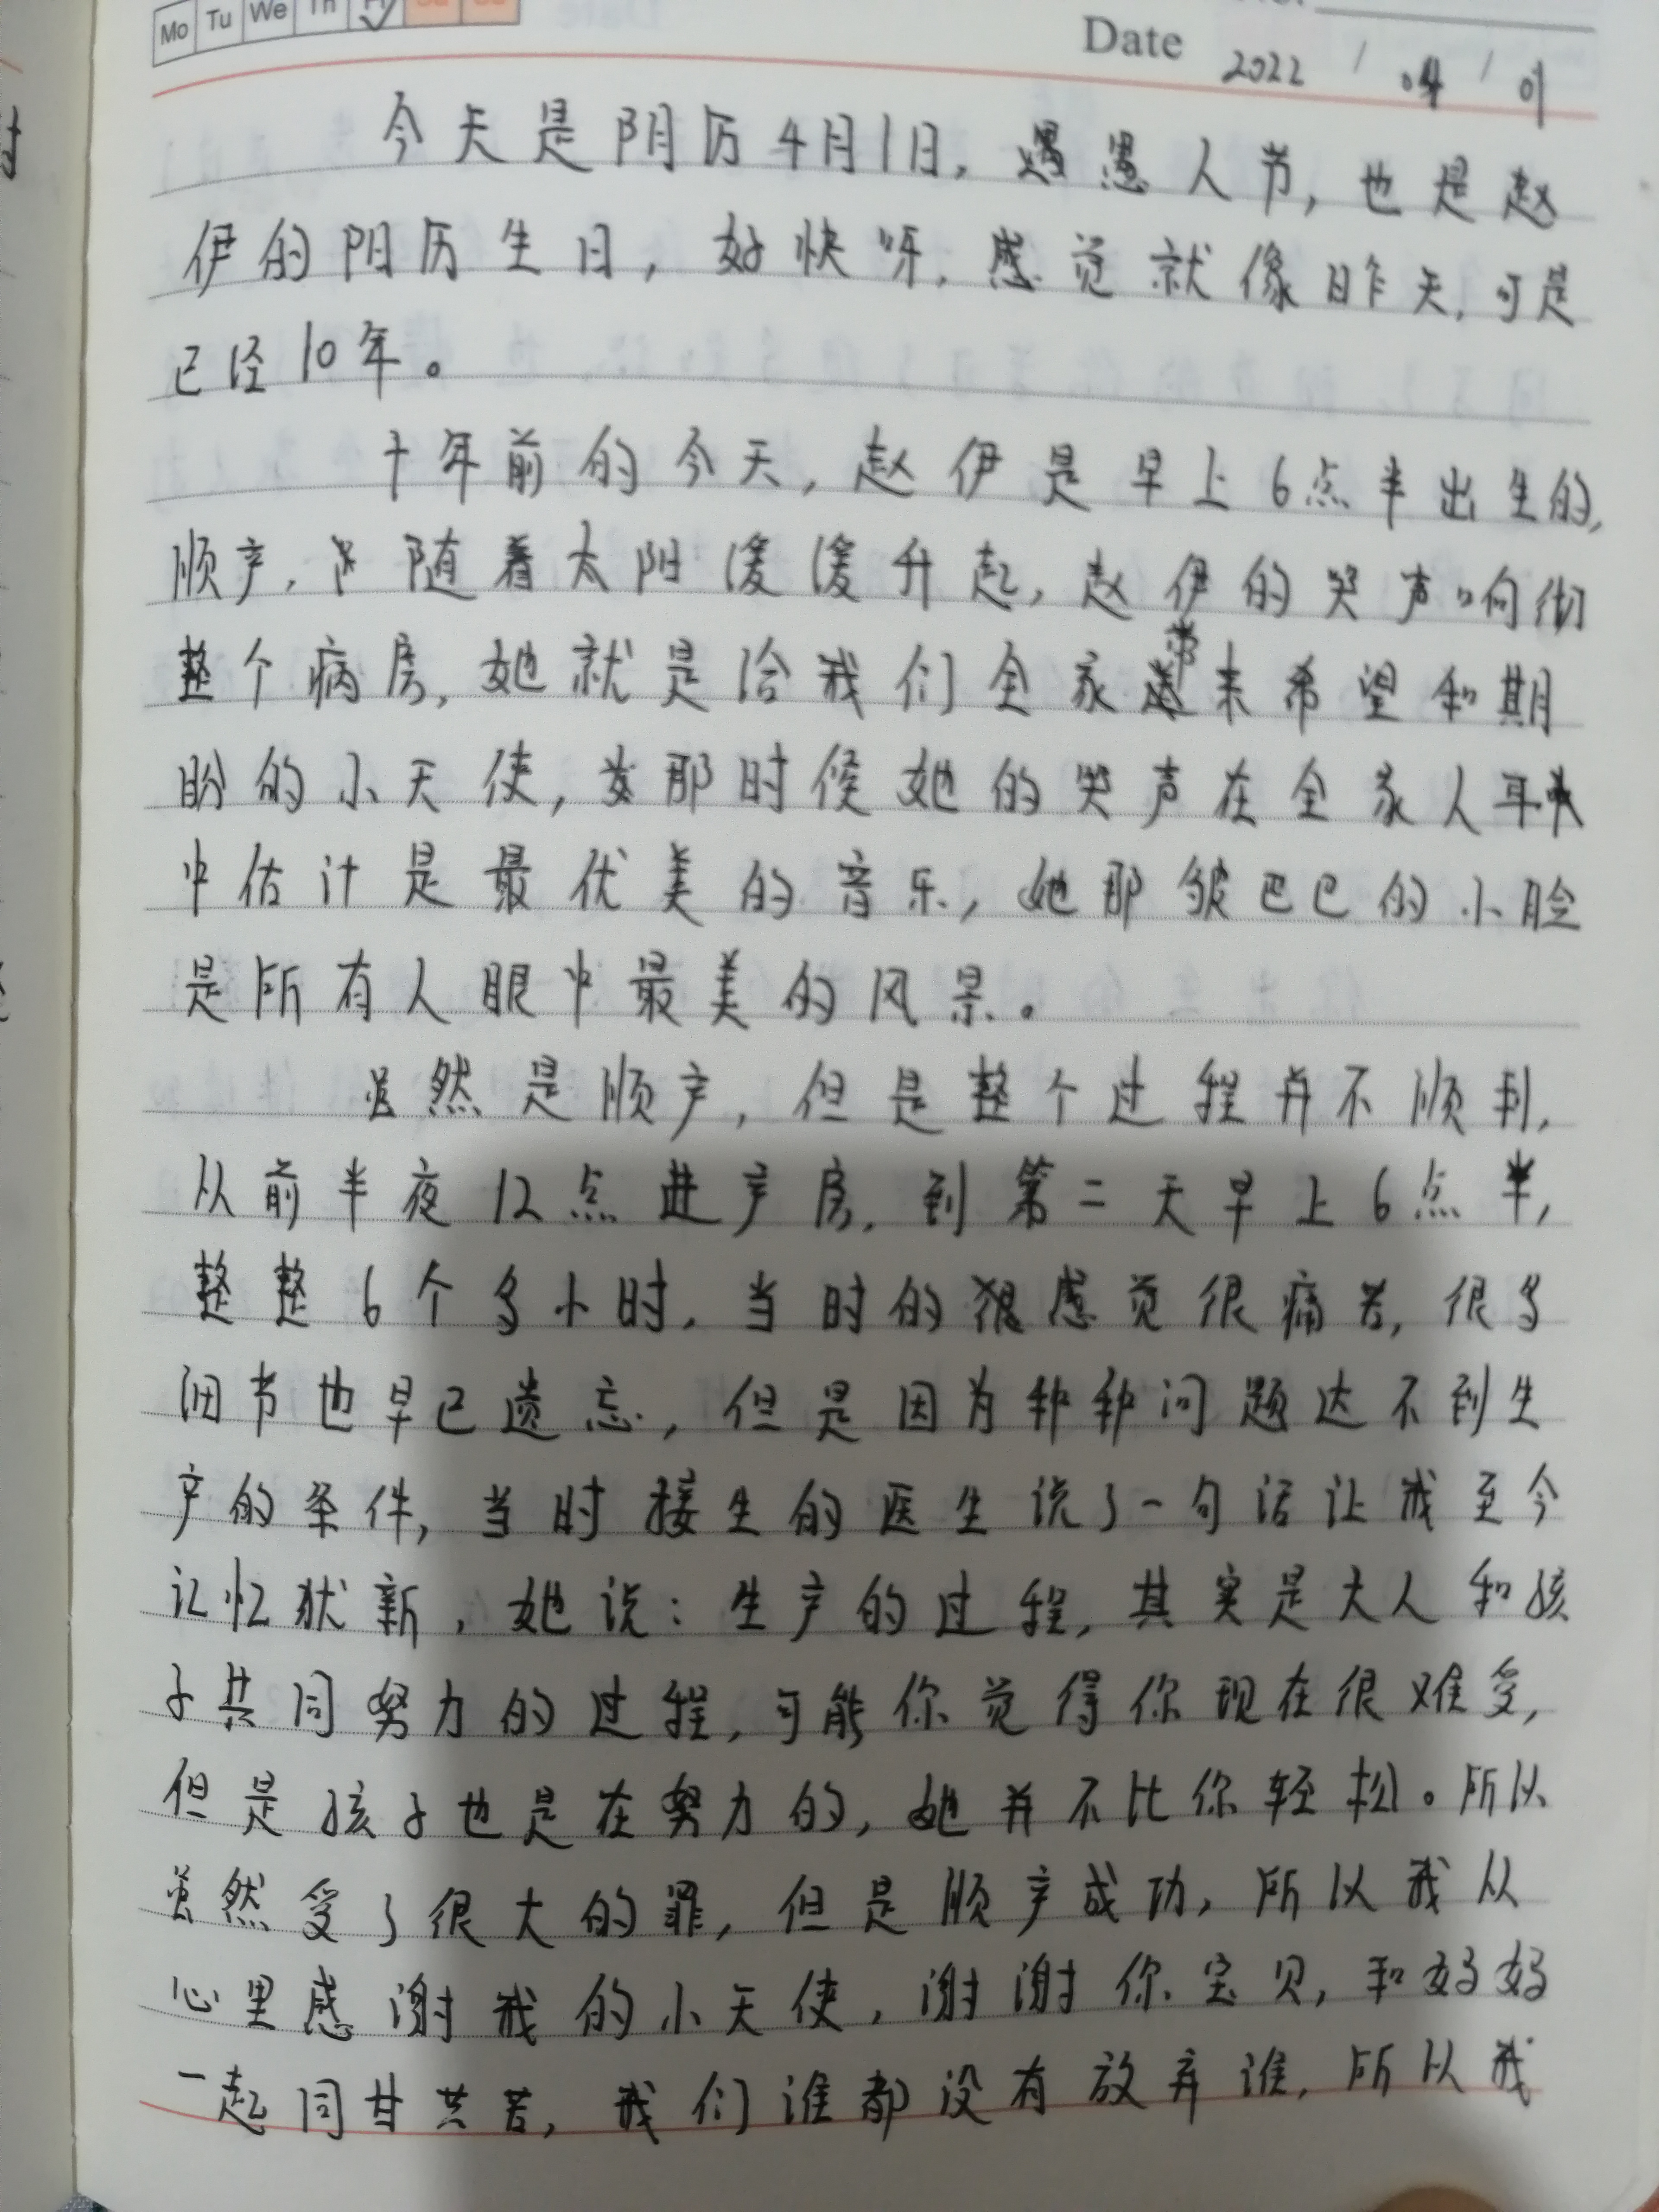 Mo Tu We Th Fr Sa Su
Date 2022 / 04 / 01
今天是阴历4月1日，愚人节，也是赵
伊的阳历生日，好快呀，感觉就像昨天，可是
已经10年。
十年前的今天，赵伊是早上6点半出生的，
顺产，随着太阳缓缓升起，赵伊的哭声响彻
整个病房，她就是给我们全家带来希望和期
盼的小天使，那时候她的哭声在全家人耳
中估计是最优美的音乐，她那皱巴巴的小脸
是所有人眼中最美的风景。
虽然是顺产，但是整个过程并不顺利，
从前半夜12点进产房，到第二天早上6点半，
整整6个多小时，当时的感觉很痛苦，很多
细节也早已遗忘，但是因为种种问题达不到生
产的条件，当时接生的医生说了一句话让我至今
记忆犹新，她说：生产的过程，其实是大人和孩
子共同努力的过程，可能你觉得你现在很难受，
但是孩子也是在努力的，她并不比你轻松。所以
虽然受了很大的罪，但是顺产成功，所以我从
心里感谢我的小天使，谢谢你宝贝，和妈妈
一起同甘共苦，我们谁都没有放弃谁，所以我